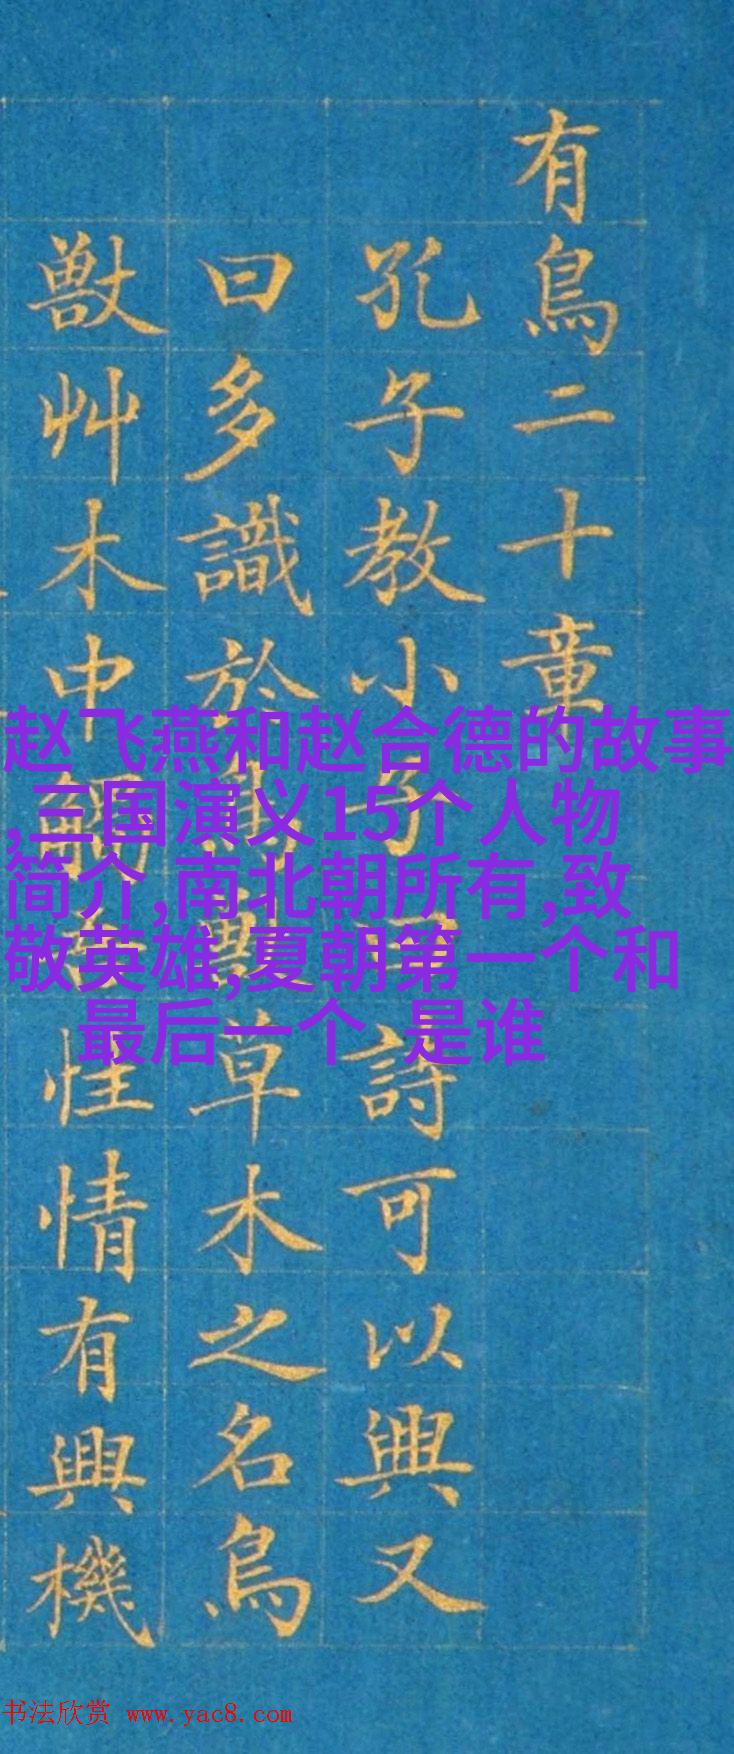 有鳥二十章
孔子教小子曰詩可以興又
曰多識於鳥獸草木之名鳥
獸艸木中惟情有興機
赵飞燕和赵合德的故事
,三国演义15个人物
简介,南北朝所有,致
敬英雄,夏朝第一个和
最后一个 是谁
书法欣赏 www.yac8.com